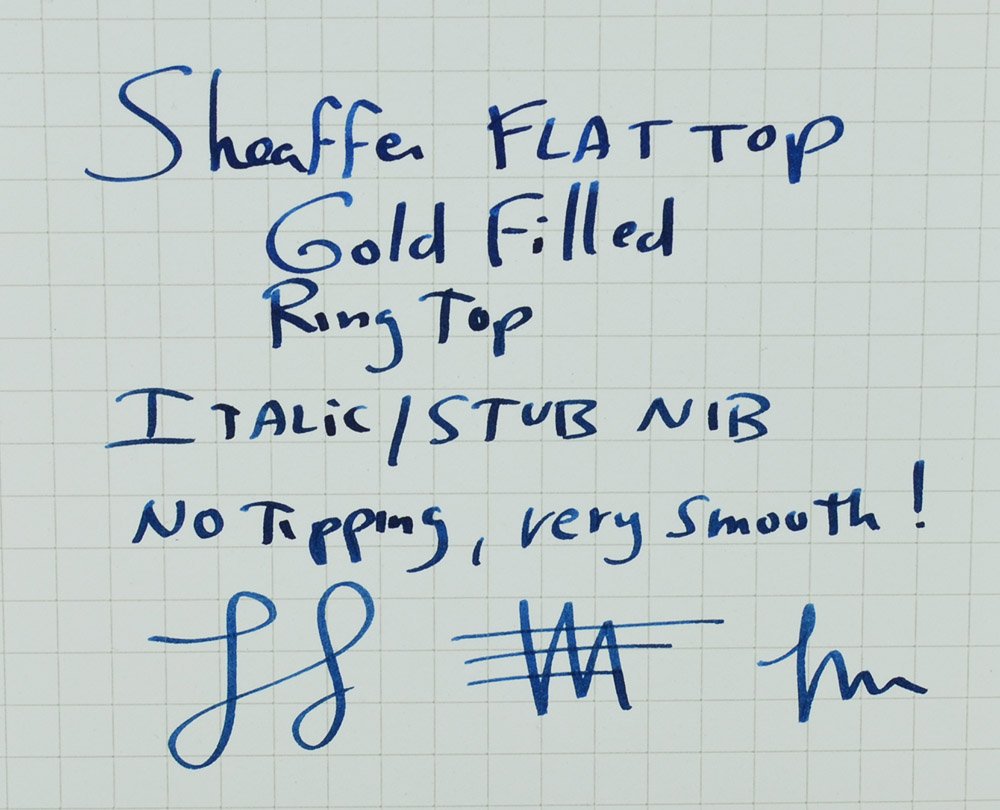 Sheaffer FLAT TOP
Gold Filled
Ring Top
ITALiC/STUB NIB
No Tipping, very smooth!